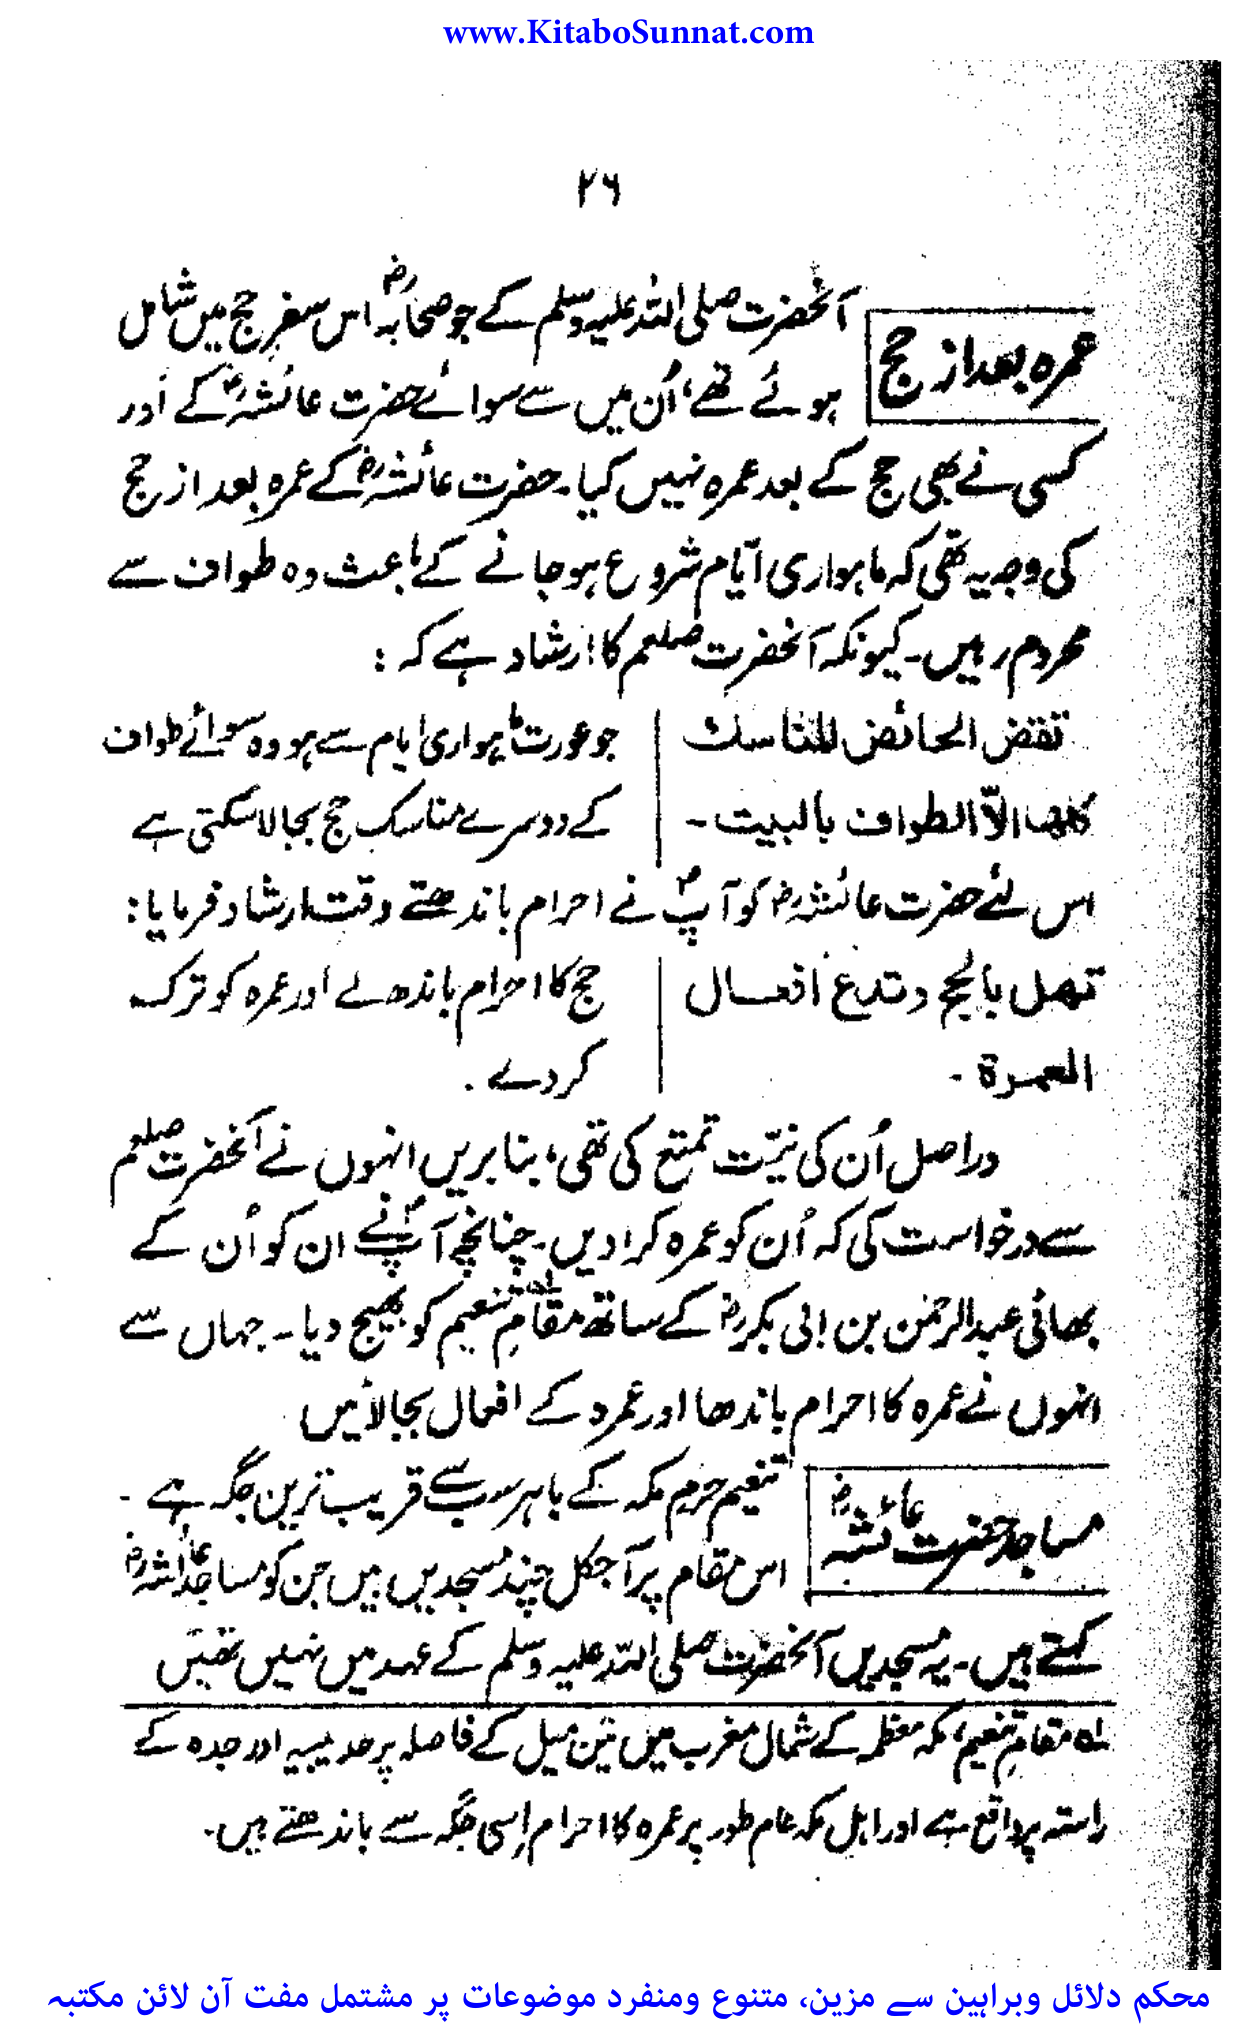 www.KitaboSunnat.com
۲۶
عمرہ بعد از حج
آنحضرت صلی اللہ علیہ وسلم کے جو صحابہؓ اس سفرِ حج میں شامل
ہوئے تھے، اُن میں سے سوائے حضرت عائشہؓ کے اَور
کسی نے بھی حج کے بعد عمرہ نہیں کیا۔ حضرت عائشہؓ کے عمرہ بعد از حج
کی وجہ یہ تھی کہ ماہواری ایام شروع ہو جانے کے باعث وہ طواف سے
محروم رہیں۔ کیونکہ آنحضرت صلعم کا ارشاد ہے کہ :
تقض الحائض المناسك | جو عورت ماہواری ایام سے ہو وہ سوائے طواف
كلها الّا الطواف بالبيت - | کے دوسرے مناسک حج بجا لا سکتی ہے
اس لئے حضرت عائشہؓ کو آپؐ نے احرام باندھتے وقت ارشاد فرمایا :
تهل بالحج وتدع افعال | حج کا احرام باندھ لے اور عمرہ کو ترک
العمرة - | کر دے ۔
دراصل اُن کی نیّت تمتع کی تھی، بنا بریں انہوں نے آنحضرت صلعم
سے درخواست کی کہ اُن کو عمرہ کرا دیں۔ چنانچہ آپؐ نے ان کو اُن کے
بھائی عبدالرحمٰن بن ابی بکرؓ کے ساتھ مقامِ تنعیم لہ کو بھیج دیا۔ جہاں سے
انہوں نے عمرہ کا احرام باندھا اور عمرہ کے افعال بجا لائیں
مساجد حضرت عائشہؓ
تنعیم حرمِ مکہ کے باہر سب سے قریب ترین جگہ ہے ۔
اس مقام پر آجکل چند مسجدیں ہیں جن کو مساجد عائشہؓ
کہتے ہیں۔ یہ مسجدیں آنحضرت صلی اللہ علیہ وسلم کے عہد میں نہیں تھیں
لہ مقامِ تنعیم، مکہ معظمہ کے شمال مغرب میں تین میل کے فاصلہ پر حدیبیہ اور جدہ کے
راستہ پر واقع ہے اور اہل مکہ عام طور پر عمرہ کا احرام اِسی جگہ سے باندھتے ہیں۔
محکم دلائل وبراہین سے مزین، متنوع ومنفرد موضوعات پر مشتمل مفت آن لائن مکتبہ